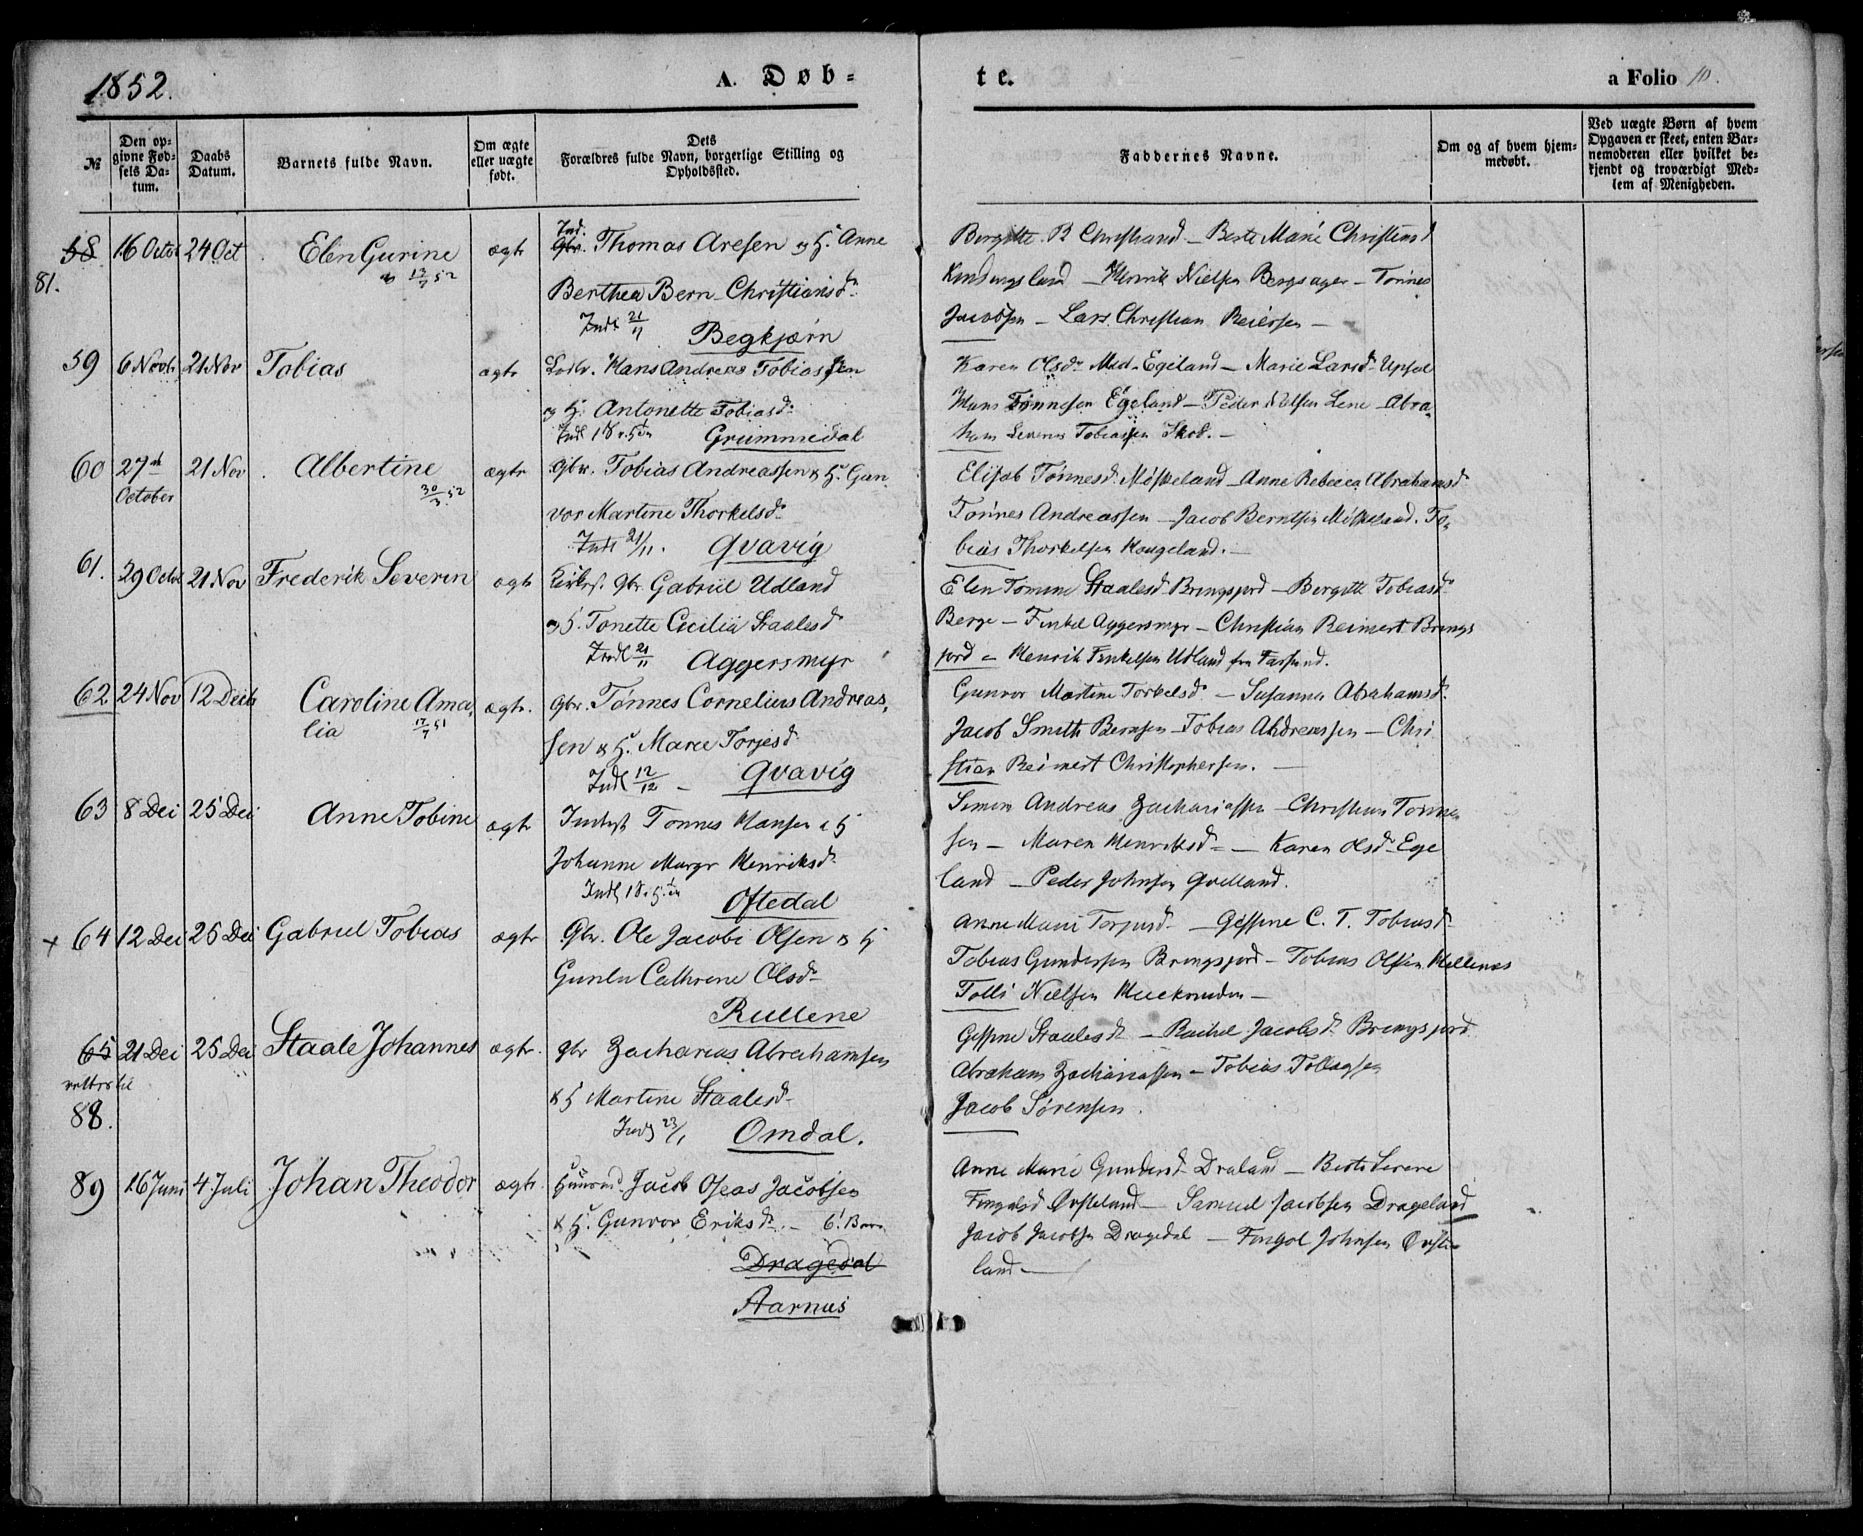 1852.
A. Døb-
te.
a Folio 10.
№
Den opgivne Fødsels Datum.
Daabs Datum.
Barnets fulde Navn.
Om ægte eller uægte født.
Dets Forældres fulde Navn, borgerlige Stilling og Opholdssted.
Faddernes Navne.
Om og af hvem hjemmedøbt.
Ved uægte Børn af hvem Opgaven er skeet, enten Barnemoderen eller hvilket bekjendt og troværdigt Medlem af Menigheden.
58 16 Octbr 24 Oct Elen Gurine ægte Gbr. Thomas Aresen og H. Anne
81.
Berthea Bern. Christiansd.
Indl 21/11 Begkjærn
Birgitte B Christiansd – Berte Marie Christensd
– Henrik Nielsen Bergsager – Tønnes
Jacobsen – Lars Christian Reiersen –
59 6 Novb. 21 Nov Tobias ægte Hans Andreas Tobiassen
og H. Antonette Tobiasd.
Grummedal
Karen Olsd. Med-Egeland – Marie Larsd. Upsal
Hans Tønnesen Egeland – Peder Lene – Abra-
ham Tobiassen Skod. –
60 27de October 21 Nov Albertine 30/3 52 ægte Gbr. Tobias Andreassen & H. Gun
vor Martine Thorkelsd.
Indl 21/11. Qvavig
Elisab Tønnesd. Møskeland – Anne Rebecca Abrahamsd
Tønnes Andreassen – Jacob Berntsen Møskeland. To-
bias Thorkelsen Haugeland. –
61. 29 Octbr 21 Nov Frederik Severin ægte Gbr. Gabriel Udland
og H. Tonette Cecilia Staalesd
Indl 21/11 Aggersmyr
Elen Tomine Staalesd Bringsjord – Bergitte Tobiasd.
Berge – Aggersmyr – Christian Reinert Brings
jord – Henrik Udland fra Farsund.
62 24 Nov 12 Decb Caroline Ama-
lia 17/7 51 ægte. Gbr. Tønnes Cornelius Andreas-
sen & H. Maree Torjesd
Indl 12/12 – Qvavig
Gunvor Martine Torkelsd. – Susanna Abrahamsd.
Jacob Smith Bernsen – Tobias Andreassen – Chri
stian Reinert Christophersen. –
63 8 Dec 25 Dec Anne Tobine ægte Tønnes Hansen & H
Johanne Margr Henriksd.
Oftedal
Simon Andreas Zachariassen – Christian Tønne-
sen – Maren Henriksd – Karen Olsd. Ege
land – Peder Johnsen
64 12 Dec 26 Dec Gabriel Tobias ægte Gbr. Ole Jacob Olsen & H
Cathrine Olsd.
Rullene
Anne Marie Torjusd. – Gesine C. T. Tobiasd.
Tobias Gundersen Bringsjord – Tobias Olsen
Nielsen –
65 21 Dec 25 Dec Staale Johannes ægte. Gbr Zacharias Abrahamsen
rettes til
88.
& H Martine Staalesd.
23/1 Omdal.
Gesine Staalesd – Rachel Jacobsd Bringsjord
Abraham Zachariassen – Tobias Tollagsen
Jacob Sørensen.
89 16 Juni 4 Juli Johan Theodor ægte. Jacob Oseas Jacobsen
& H. Gunvor Eriksd. –
Dragedal
Aarnus
Anne Marie Gundersd – Berte Serene
– Samuel Jacobsen Drageland
Jacob Jacobsen Dragedal – Fingal Johnsen Øvste-
land –